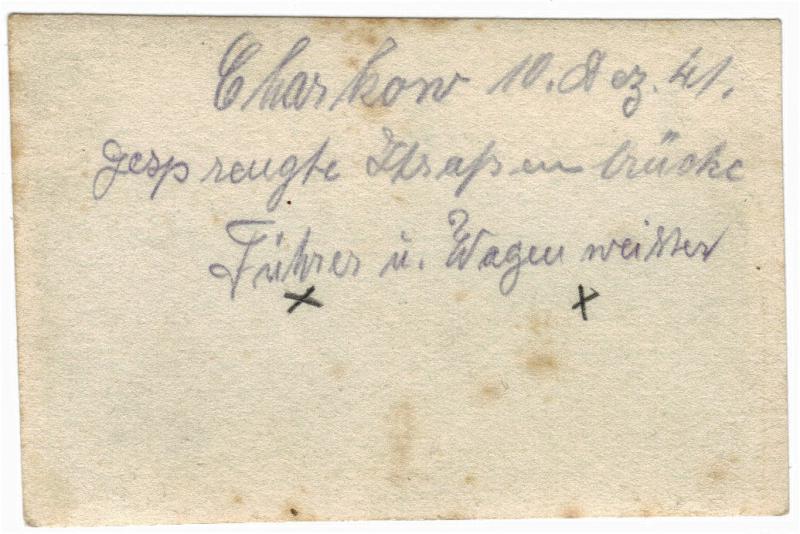 Charkow 10. Dez. 41.
gesprengte Straßenbrücke
Führer u. Wagen weißter
x x